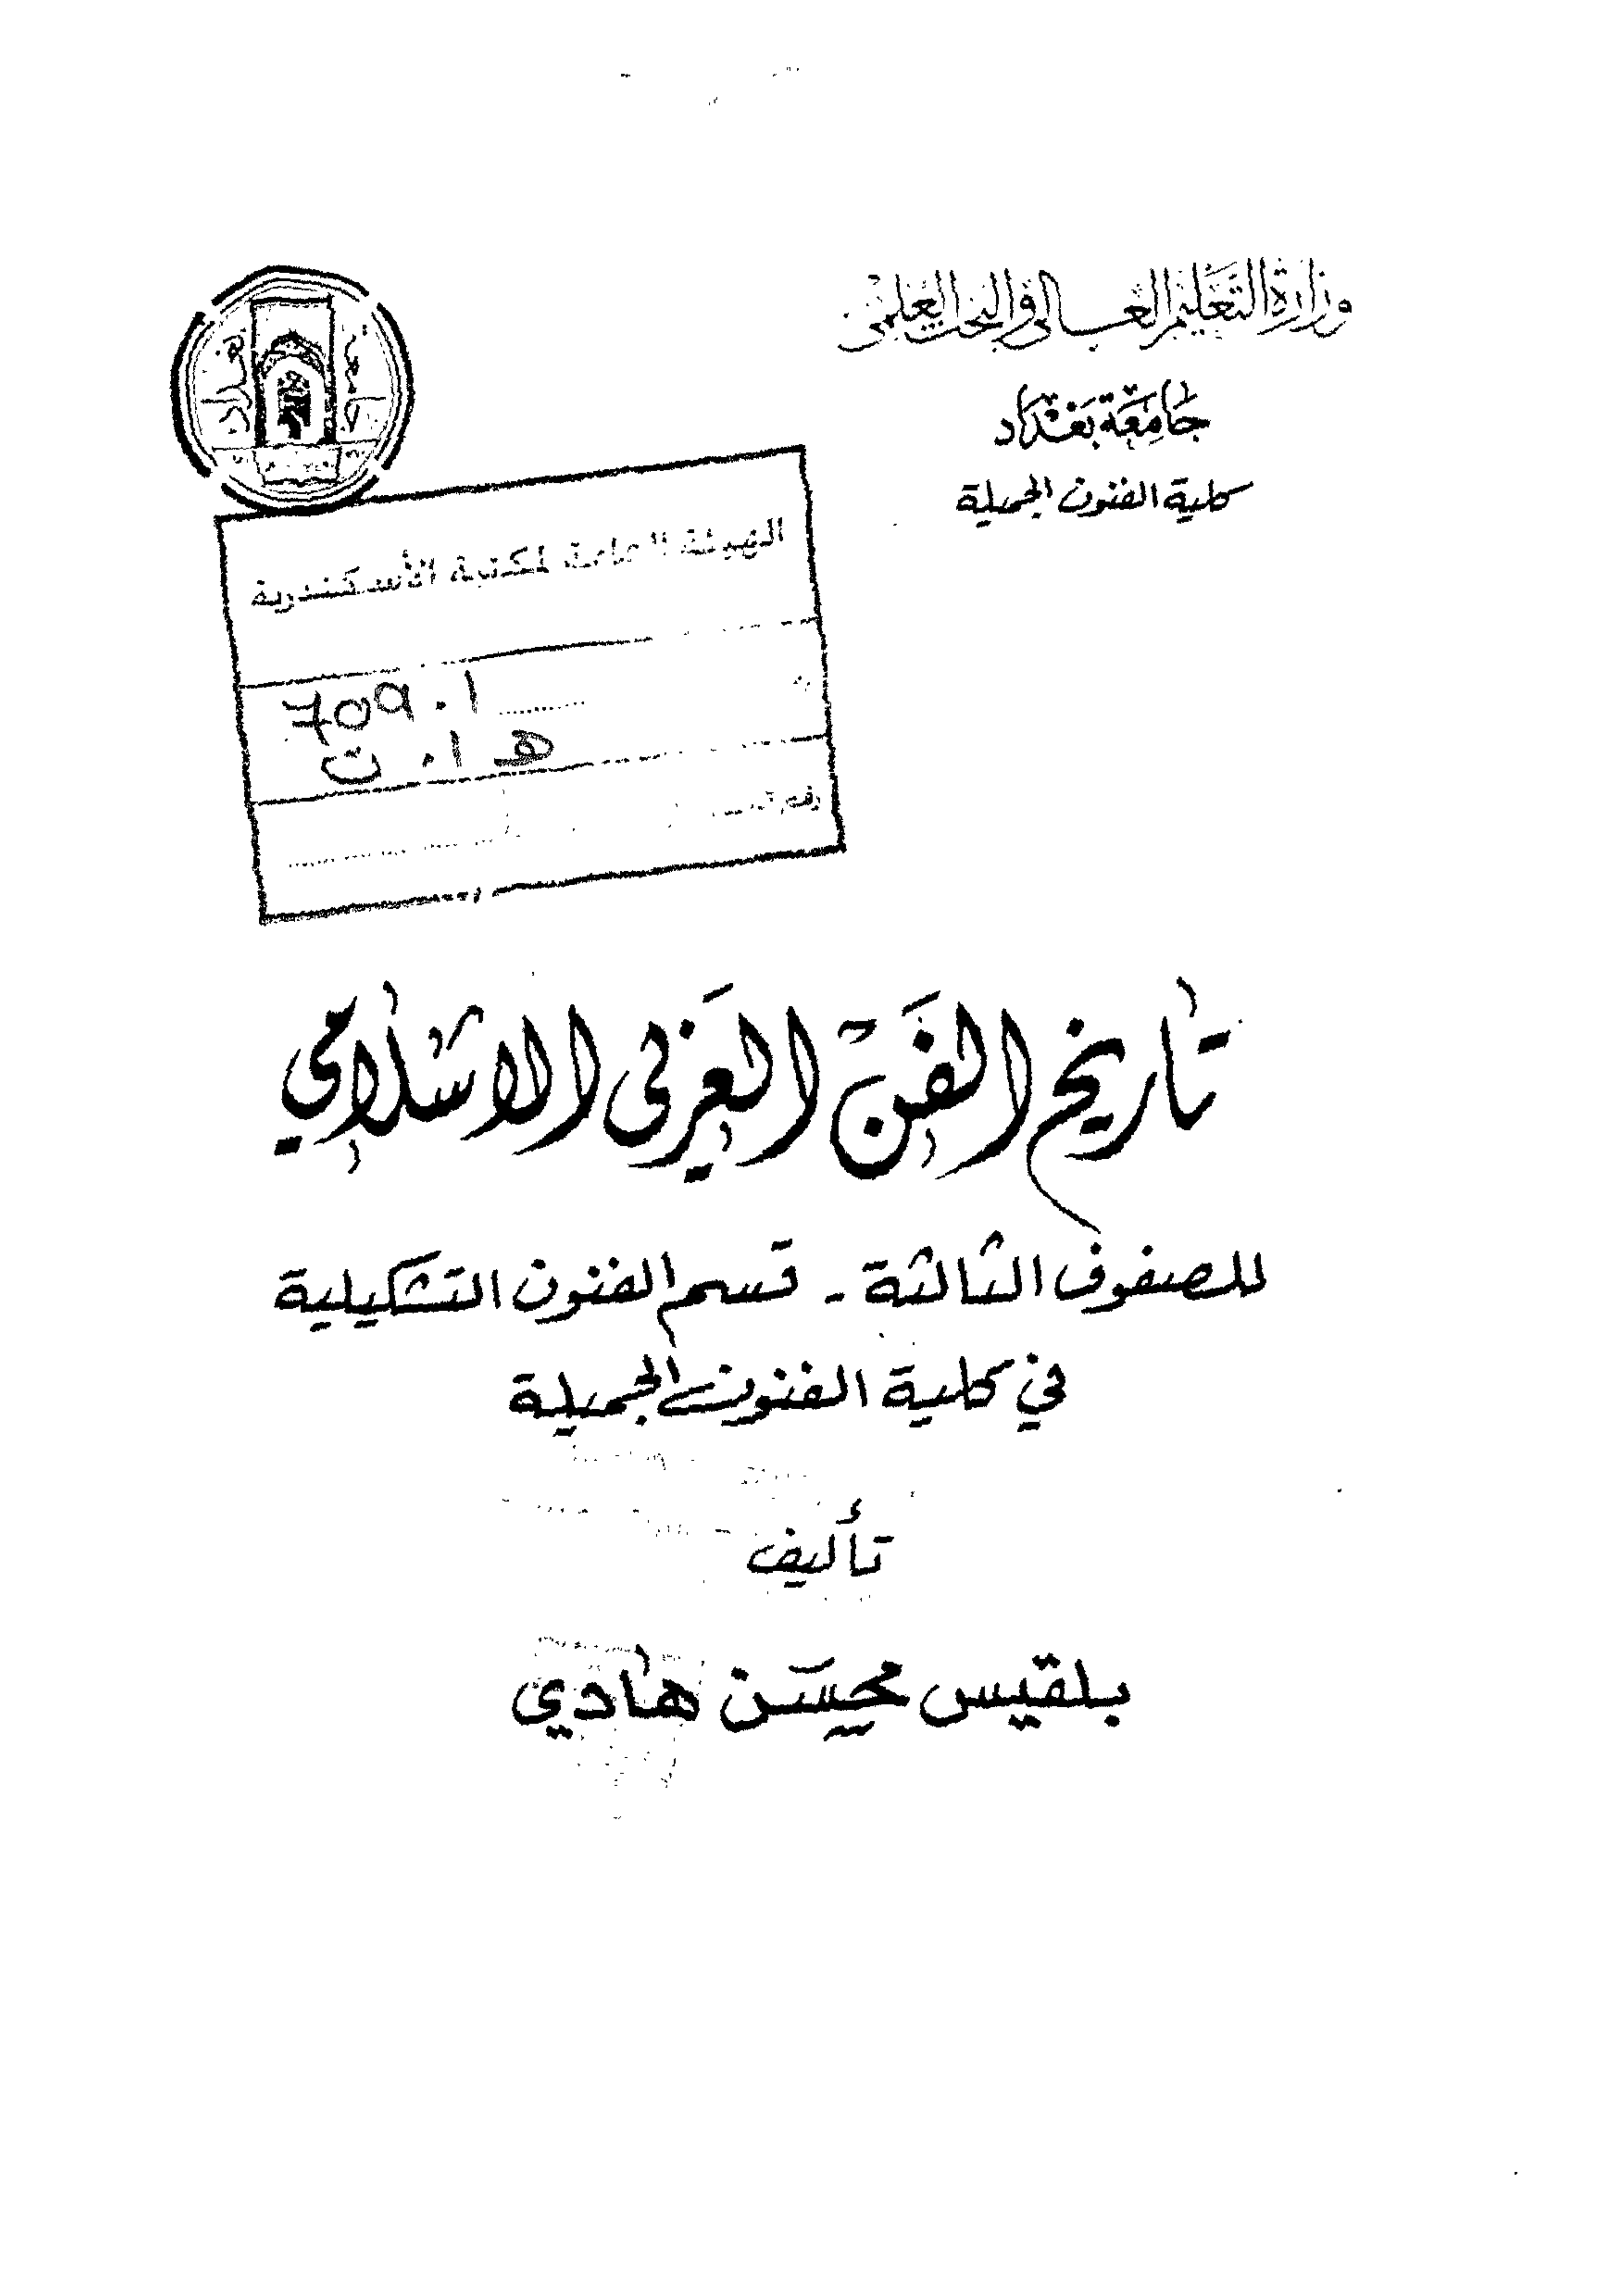 وزارة التعليم العالي والبحث العلمي
جامعة بغداد
كلية الفنون الجميلة
الهيئة العامة لمكتبة الأسكندرية
709.1
هـ ا. ت
رقم
تاريخ الفن العربي الاسلامي
للصفوف الثالثة - قسم الفنون التشكيلية
في كلية الفنون الجميلة
تأليف
بلقيس محسن هادي